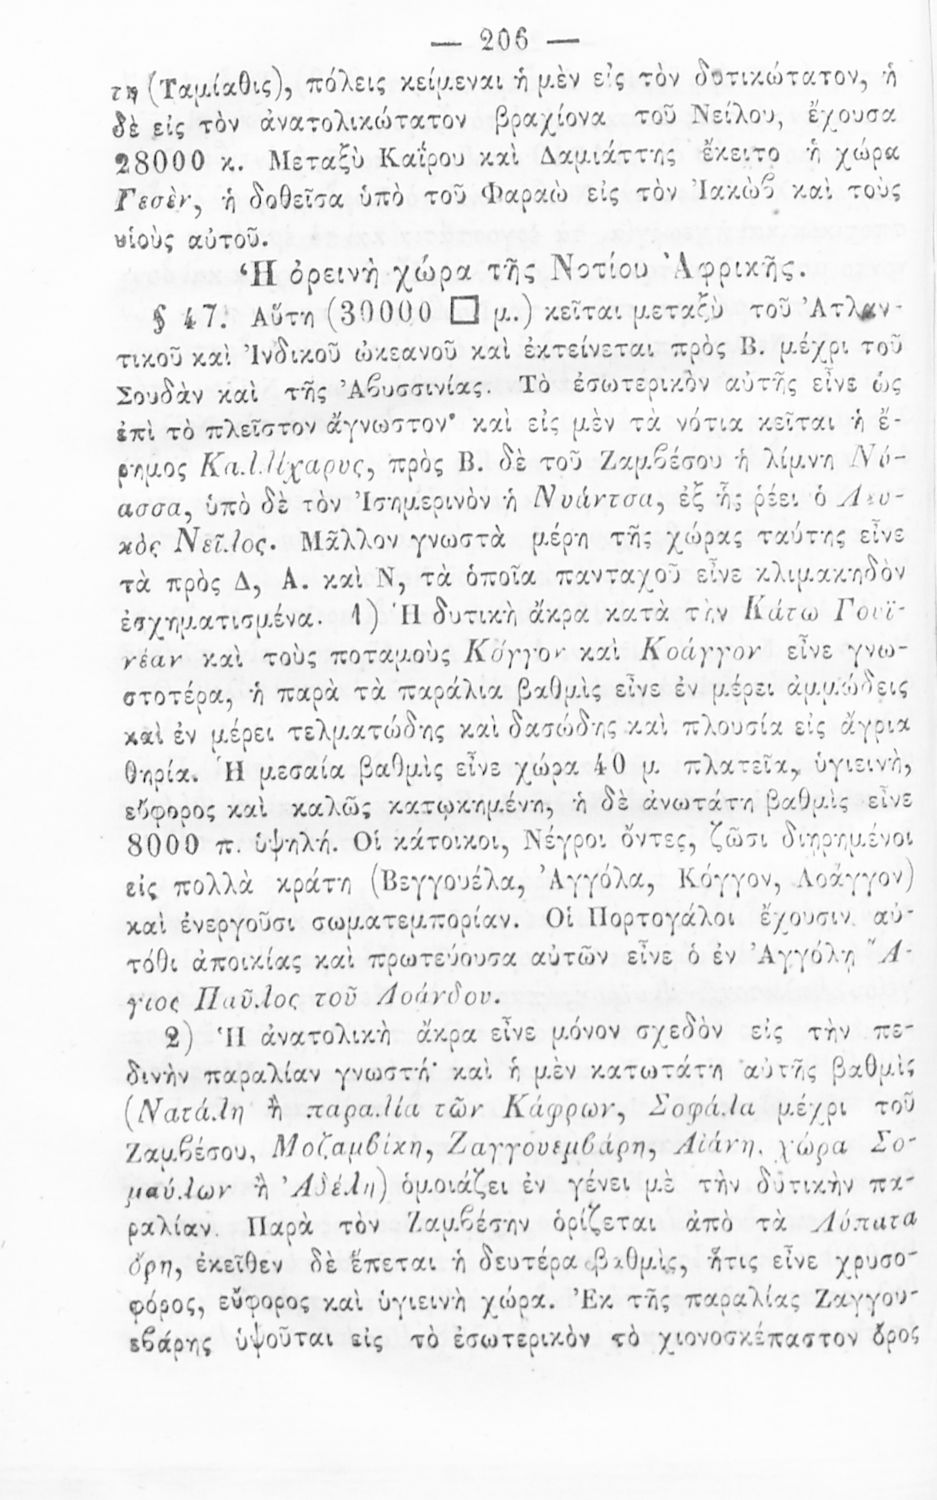 — 206 —
τη (Ταμίαθις), πόλεις κείμεναι ἡ μὲν εἰς τὸν δυτικώτατον, ἡ
δὲ εἰς τὸν ἀνατολικώτατον βραχίονα τοῦ Νείλου, ἔχουσα
28000 κ. Μεταξὺ Καΐρου καὶ Δαμιάττης ἔκειτο ἡ χώρα
Γεσὲν, ἡ δοθεῖσα ὑπὸ τοῦ Φαραὼ εἰς τὸν Ἰακὼβ καὶ τοὺς
υἱοὺς αὐτοῦ.
Ἡ ὀρεινὴ χώρα τῆς Νοτίου Ἀφρικῆς.
§ 47. Αὕτη (30000 □ μ.) κεῖται μεταξὺ τοῦ Ἀτλαν-
τικοῦ καὶ Ἰνδικοῦ ὠκεανοῦ καὶ ἐκτείνεται πρὸς Β. μέχρι τοῦ
Σουδὰν καὶ τῆς Ἀβυσσινίας. Τὸ ἐσωτερικὸν αὐτῆς εἶνε ὡς
ἐπὶ τὸ πλεῖστον ἄγνωστον· καὶ εἰς μὲν τὰ νότια κεῖται ἡ ἔ-
ρημος Καλλίχαρυς, πρὸς Β. δὲ τοῦ Ζαμβέσου ἡ λίμνη Νύ-
ασσα, ὑπὸ δὲ τὸν Ἰσημερινὸν ἡ Νυάντσα, ἐξ ἧς ῥέει ὁ Λευ-
κὸς Νεῖλος. Μᾶλλον γνωστὰ μέρη τῆς χώρας ταύτης εἶνε
τὰ πρὸς Δ, Α. καὶ Ν, τὰ ὁποῖα πανταχοῦ εἶνε κλιμακηδὸν
ἐσχηματισμένα. 1) Ἡ δυτικὴ ἄκρα κατὰ τὴν Κάτω Γουϊ-
νέαν καὶ τοὺς ποταμοὺς Κόγγον καὶ Κοάγγον εἶνε γνω-
στοτέρα, ἡ παρὰ τὰ παράλια βαθμὶς εἶνε ἐν μέρει ἀμμώδεις
καὶ ἐν μέρει τελματώδης καὶ δασώδης καὶ πλουσία εἰς ἄγρια
θηρία. Ἡ μεσαία βαθμὶς εἶνε χώρα 40 μ. πλατεῖα, ὑγιεινὴ,
εὔφορος καὶ καλῶς κατῳκημένη, ἡ δὲ ἀνωτάτη βαθμὶς εἶνε
8000 π. ὑψηλή. Οἱ κάτοικοι, Νέγροι ὄντες, ζῶσι διῃρημένοι
εἰς πολλὰ κράτη (Βεγγουέλα, Ἀγγόλα, Κόγγον, Λοάγγον)
καὶ ἐνεργοῦσι σωματεμπορίαν. Οἱ Πορτογάλοι ἔχουσιν αὐ-
τόθι ἀποικίας καὶ πρωτεύουσα αὐτῶν εἶνε ὁ ἐν Ἀγγόλῃ Ἅ-
γιος Παῦλος τοῦ Λοάνδου.
2) Ἡ ἀνατολικὴ ἄκρα εἶνε μόνον σχεδὸν εἰς τὴν πε-
δινὴν παραλίαν γνωστή· καὶ ἡ μὲν κατωτάτη αὐτῆς βαθμὶς
(Νατάλη ἢ παραλία τῶν Κάφρων, Σοφάλα μέχρι τοῦ
Ζαμβέσου, Μοζαμβίκη, Ζαγγουεμβάρη, Αἰάνη, χώρα Σο-
μαύλων ἢ Ἀδέλη) ὁμοιάζει ἐν γένει μὲ τὴν δυτικὴν πα-
ραλίαν. Παρὰ τὸν Ζαμβέσην ὁρίζεται ἀπὸ τὰ Λύπατα
ὄρη, ἐκεῖθεν δὲ ἕπεται ἡ δευτέρα βαθμὶς, ἥτις εἶνε χρυσο-
φόρος, εὔφορος καὶ ὑγιεινὴ χώρα. Ἐκ τῆς παραλίας Ζαγγου-
εβάρης ὑψοῦται εἰς τὸ ἐσωτερικὸν τὸ χιονοσκέπαστον ὄρος